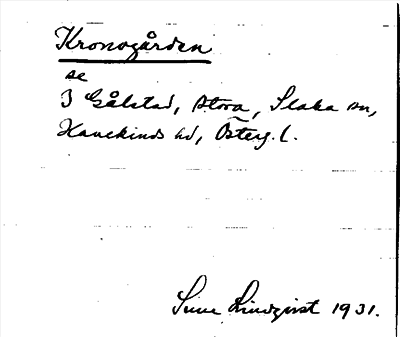 Kronogården
se
3 Gålstad, stora, Slaka sn,
Hanekinds hd, Österg. l.
Sune Lindqvist 1931.